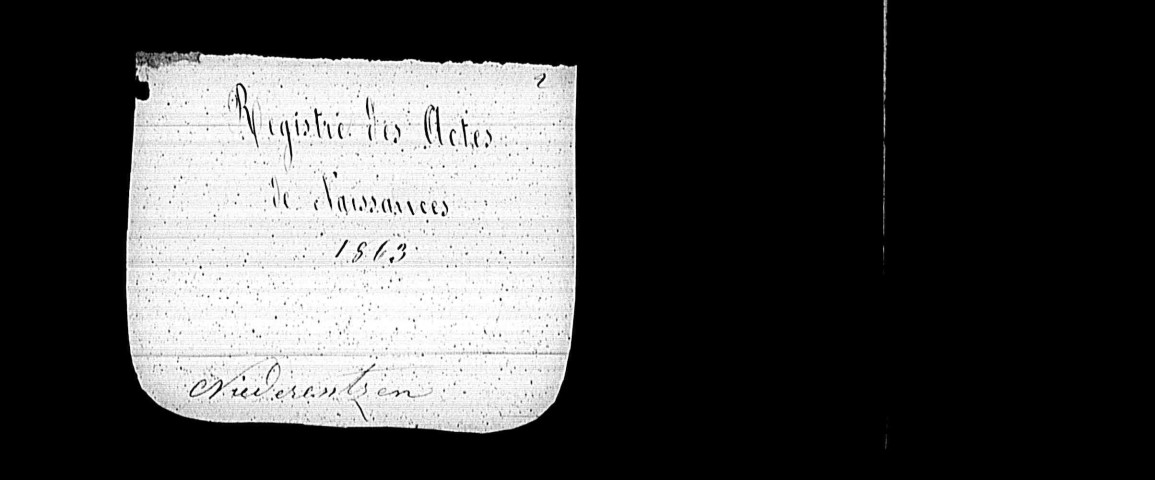 2
Registre des Actes
de Naissances
1863
Niederentzen